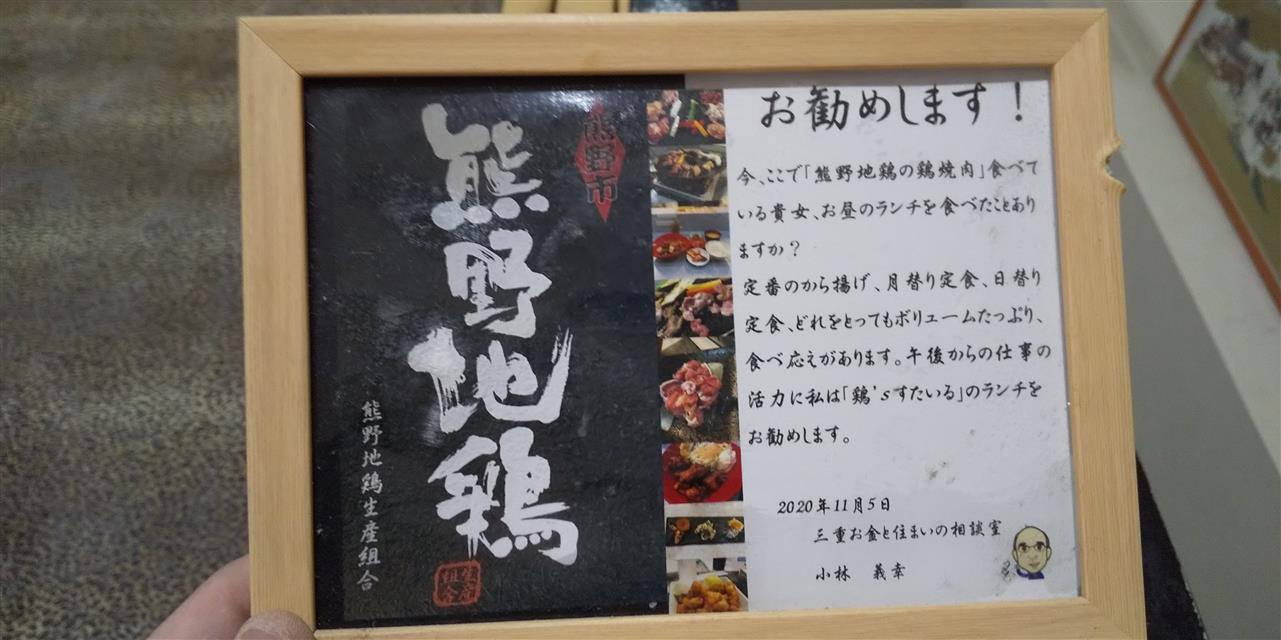 熊野地鶏
熊野市
熊野地鶏生産組合
生産
組合
お勧めします!
今、ここで「熊野地鶏の鶏焼肉」食べて
いる貴女、お昼のランチを食べたことあり
ますか?
定番のから揚げ、月替り定食、日替り
定食、どれをとってもボリュームたっぷり、
食べ応えがあります。午後からの仕事の
活力に私は「鶏'sすたいる」のランチを
お勧めします。
2020年11月5日
三重お金と住まいの相談室
小林 義幸